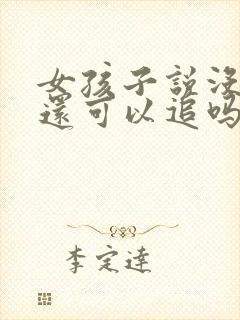 女孩子説没
還可以追吗
李定達